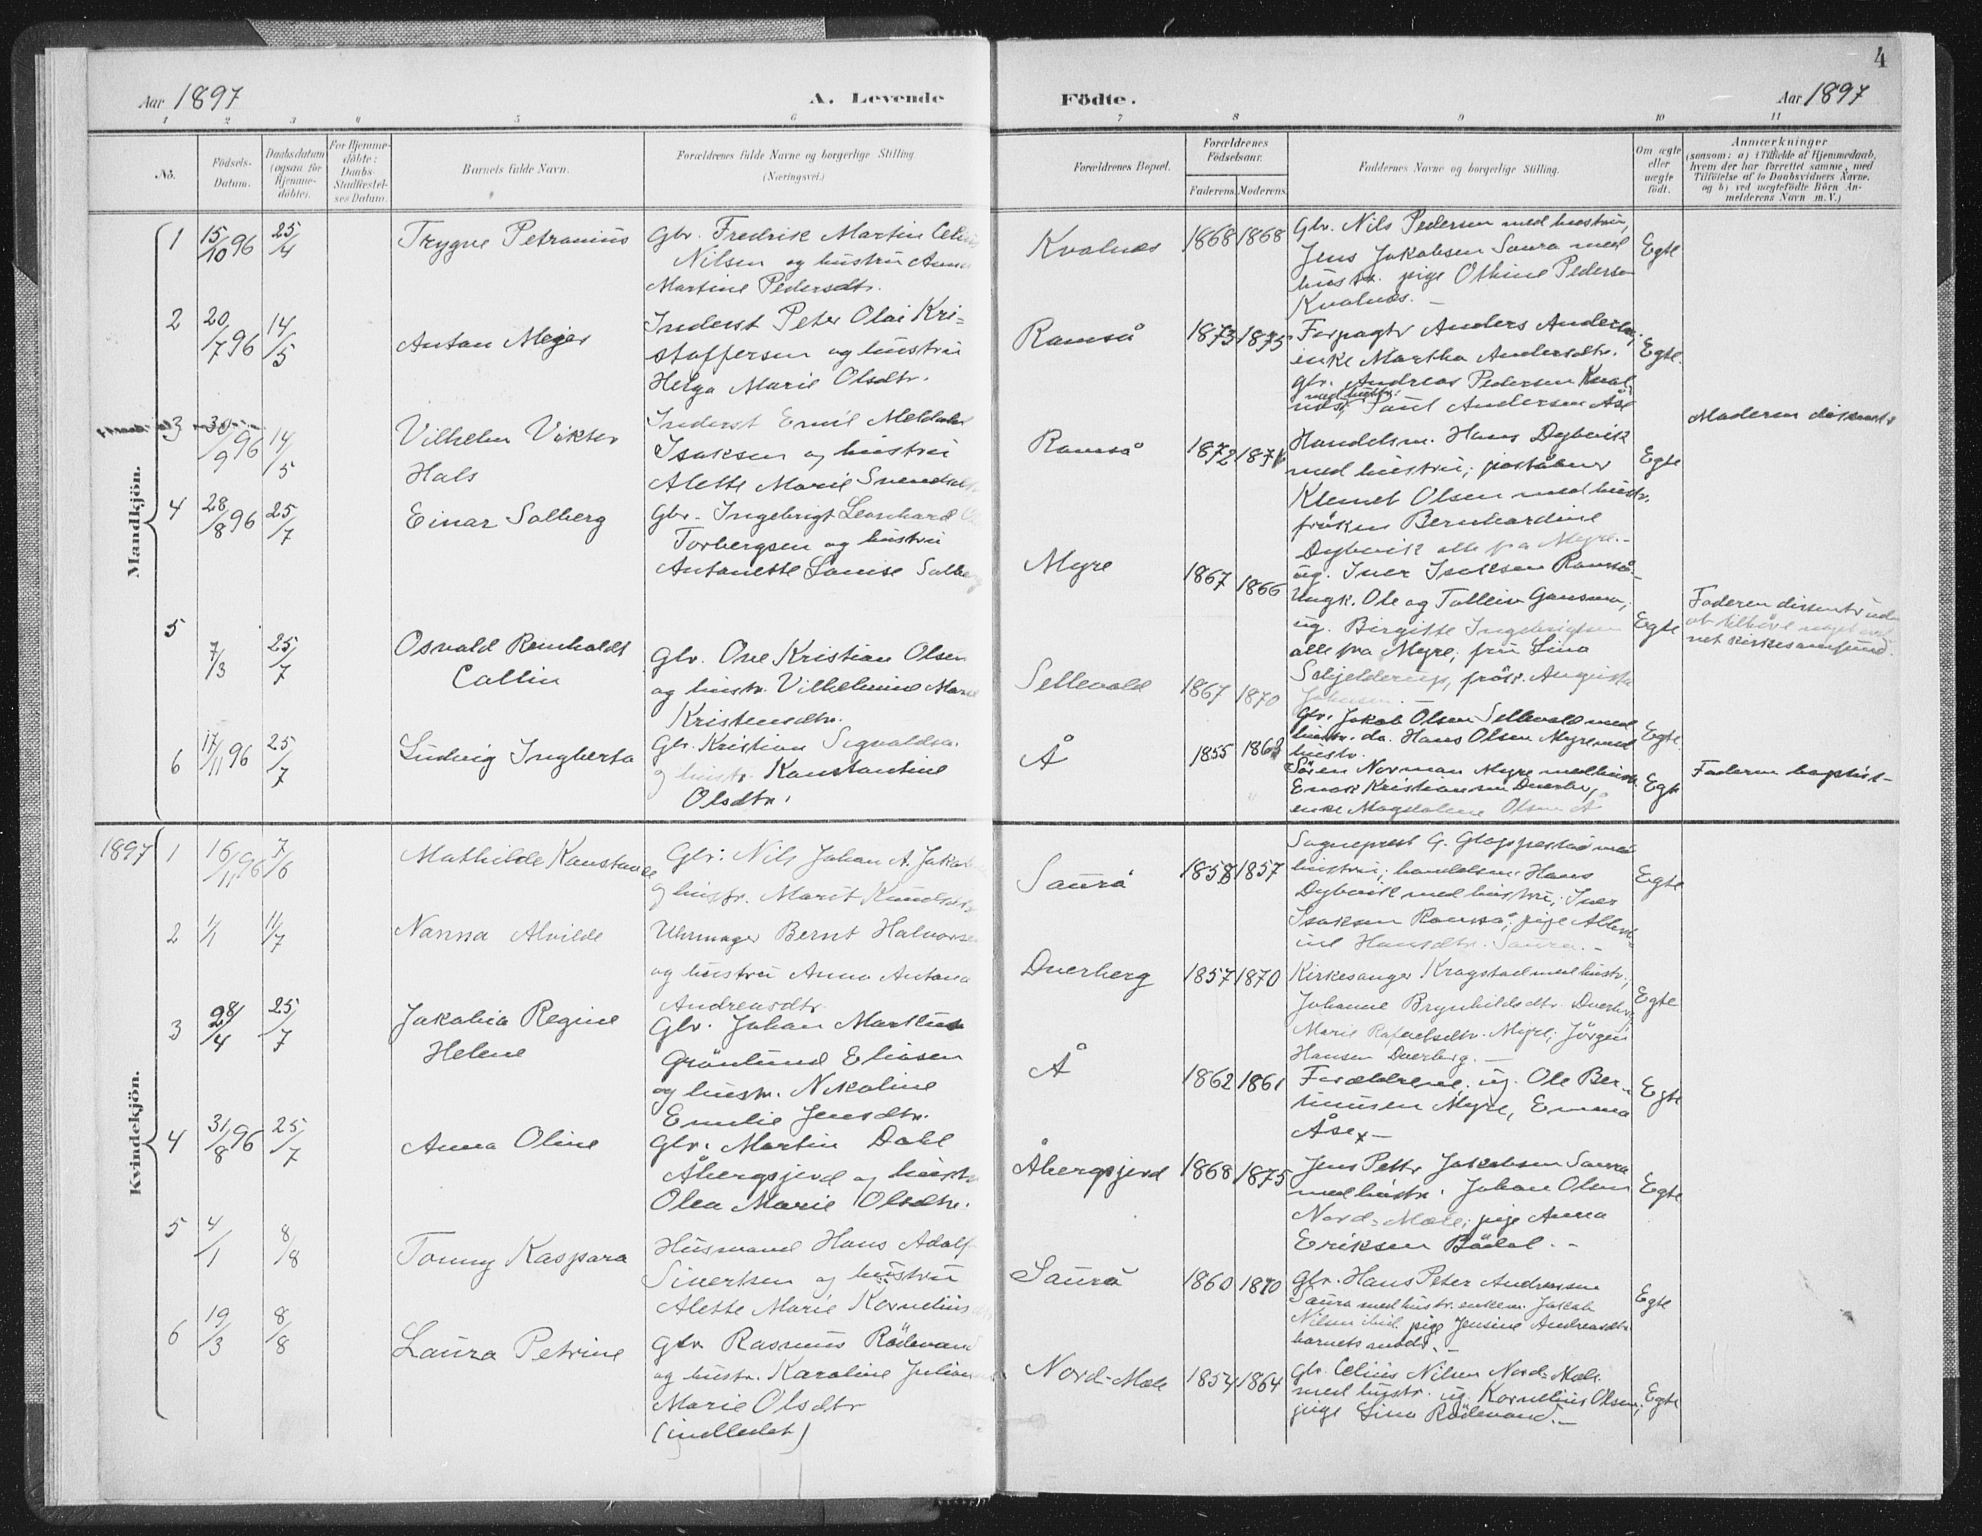 Aar 1897
A. Levende
Födte.
Aar 1897
4
1 2 3 4 5 6 7 8 9 10 11
No.
Födsels-
Datum.
Daabsdatum
(ogsaa for
Hjemme-
döbte).
For Hjemme-
döbte:
Daabs-
Stadfæstel-
ses Datum.
Barnets fulde Navn.
Forældrenes fulde Navne og borgerlige Stilling
(Næringsvei.)
Forældrenes Bopæl.
Forældrenes
Födselsaar.
Faderens. Moderens.
Faddernes Navne og borgerlige Stilling.
Om ægte
eller
uægte
födt.
Anmærkninger
(saasom: a) i Tilfælde af Hjemmedaab,
hvem der har forrettet samme, med
Tilföielse af to Daabsvidners Navne,
og b) ved uægtefödte Börn An-
melderens Navn m. V.)
Mandkjön.
1 15/10 96 25/4 Trygve Petronius
Gbr. Fredrik Martin
Nilsen og hustru Anna
Martine Pedersdtr.
Kvalnes 1868 1868
Gbr. Nils Pedersen med hustru,
Jens Jakobsen Saura med
hustr. pige Othine Pedersen
Kvalnes. —
Egte
2 20/7 96 14/5 Anton Mejer
Inderst Peter Olai Kri-
stoffersen og hustru
Helga Marie Olsdtr.
Ramså 1873 1875
Forpagtr Anders
enke Martha Andersdtr.
gbr. Andreas Pedersen Kval-
med hustr.
nes, Paul Andersen Åse
Egte.
3 30/9 96 14/5 Vilhelm Viktor
Hals
Inderst Emil
Isaksen og hustru
Alette Marie
Ramså 1872
Handelsm. Hans Dybvik
med hustru; poståbner
Klemet Olsen med hustr.
fröken Bernhardine
Dybvik alle fra Myre. —
Egte
Moderen
4 28/8 96 25/7 Einar Solberg
Gbr. Ingebrigt Leonhard
Torbergsen og hustru
Antonette Lovise
Myre 1867 1866
ug. Iver Isaksen Ramså
Ungk. Ole og
ug. Birgitte
alle fra Myre, fru Lina
fröк.
Egte
Faderen
5 7/3 25/7 Osvald Reinholdt
Collin
Gbr. Ove Kristian Olsen
og hustr. Vilhelmine
Kristensdtr.
Sellevold 1867 1870
Gbr. Jakob Olsen Sellevold med
hustr. do. Hans Olsen Myre med
hustr.
Egte
6 17/11 96 25/7 Ludvig Ingberta
Gbr. Kristian
og hustr. Konstantine
Olsdtr.
Å 1855
Sören Norman Myre med hustr.
enke Magdalene Olsen Å
Egte
Faderen baptist
Kvindekjön.
1897 1 16/11 96 7/6 Mathilde
Gbr. Nils Johan A.
og hustr. Marit
Saurå 1858 1857
Sogneprest G.
hustru; handelsm. Hans
Dybvik med hustru; Iver
Isaksen Ramså; pige
Hansdtr. Saura. —
Egte
2 1/1 11/7 Nanna Alvilde
Uhrmager Bernt
og hustru Anna Antona
Andreasdtr.
Dverberg 1857 1870
Kirkesanger Kragstad med hustr.;
Johanne Brynhildsdtr.
Marie Rafaelsdtr. Myre; Jörgen
Hansen Dverberg. —
Egte
3 28/4 25/7 Jakobia Regine
Helene
Gbr. Johan
Grönlund Eliasen
og hustr. Nikoline
Emilie Jensdtr.
Å 1862 1861
Forældrene, ug. Ole Ber-
Myre, Emma
Åse —
Egte
4 31/8 96 25/7 Anna Oline
Gbr. Martin Dahl
Åbergsjord og hustr
Olea Marie Olsdtr.
Åbergsjord 1868 1875
Jens Petter Jakobsen Saura
med hustr. Johan Olsen
Nord-Mele; pige Anna
Eriksen Bödal. —
Egte
5 4/1 8/8 Tonny Kaspara
Husmand Hans Adolf
Sivertsen og hustru
Alette Marie
Saurå 1860 1870
Gbr. Hans Peter Andreassen
Saura med hustr. enkem. Jakob
Nilsen ibid. pige Jensine Andreasdtr.
barnets
Egte
6 19/3 8/8 Laura Petrine
Gbr. Rasmus Rödevand
og hustr. Karoline
Marie Olsdtr.
(indledet)
Nord-Mele 1854 1864
Gbr. Celius Nilsen Nord-Mele
med hustr. ug. Kornelius Olsen;
pige Lina Rödevand. —
Egte